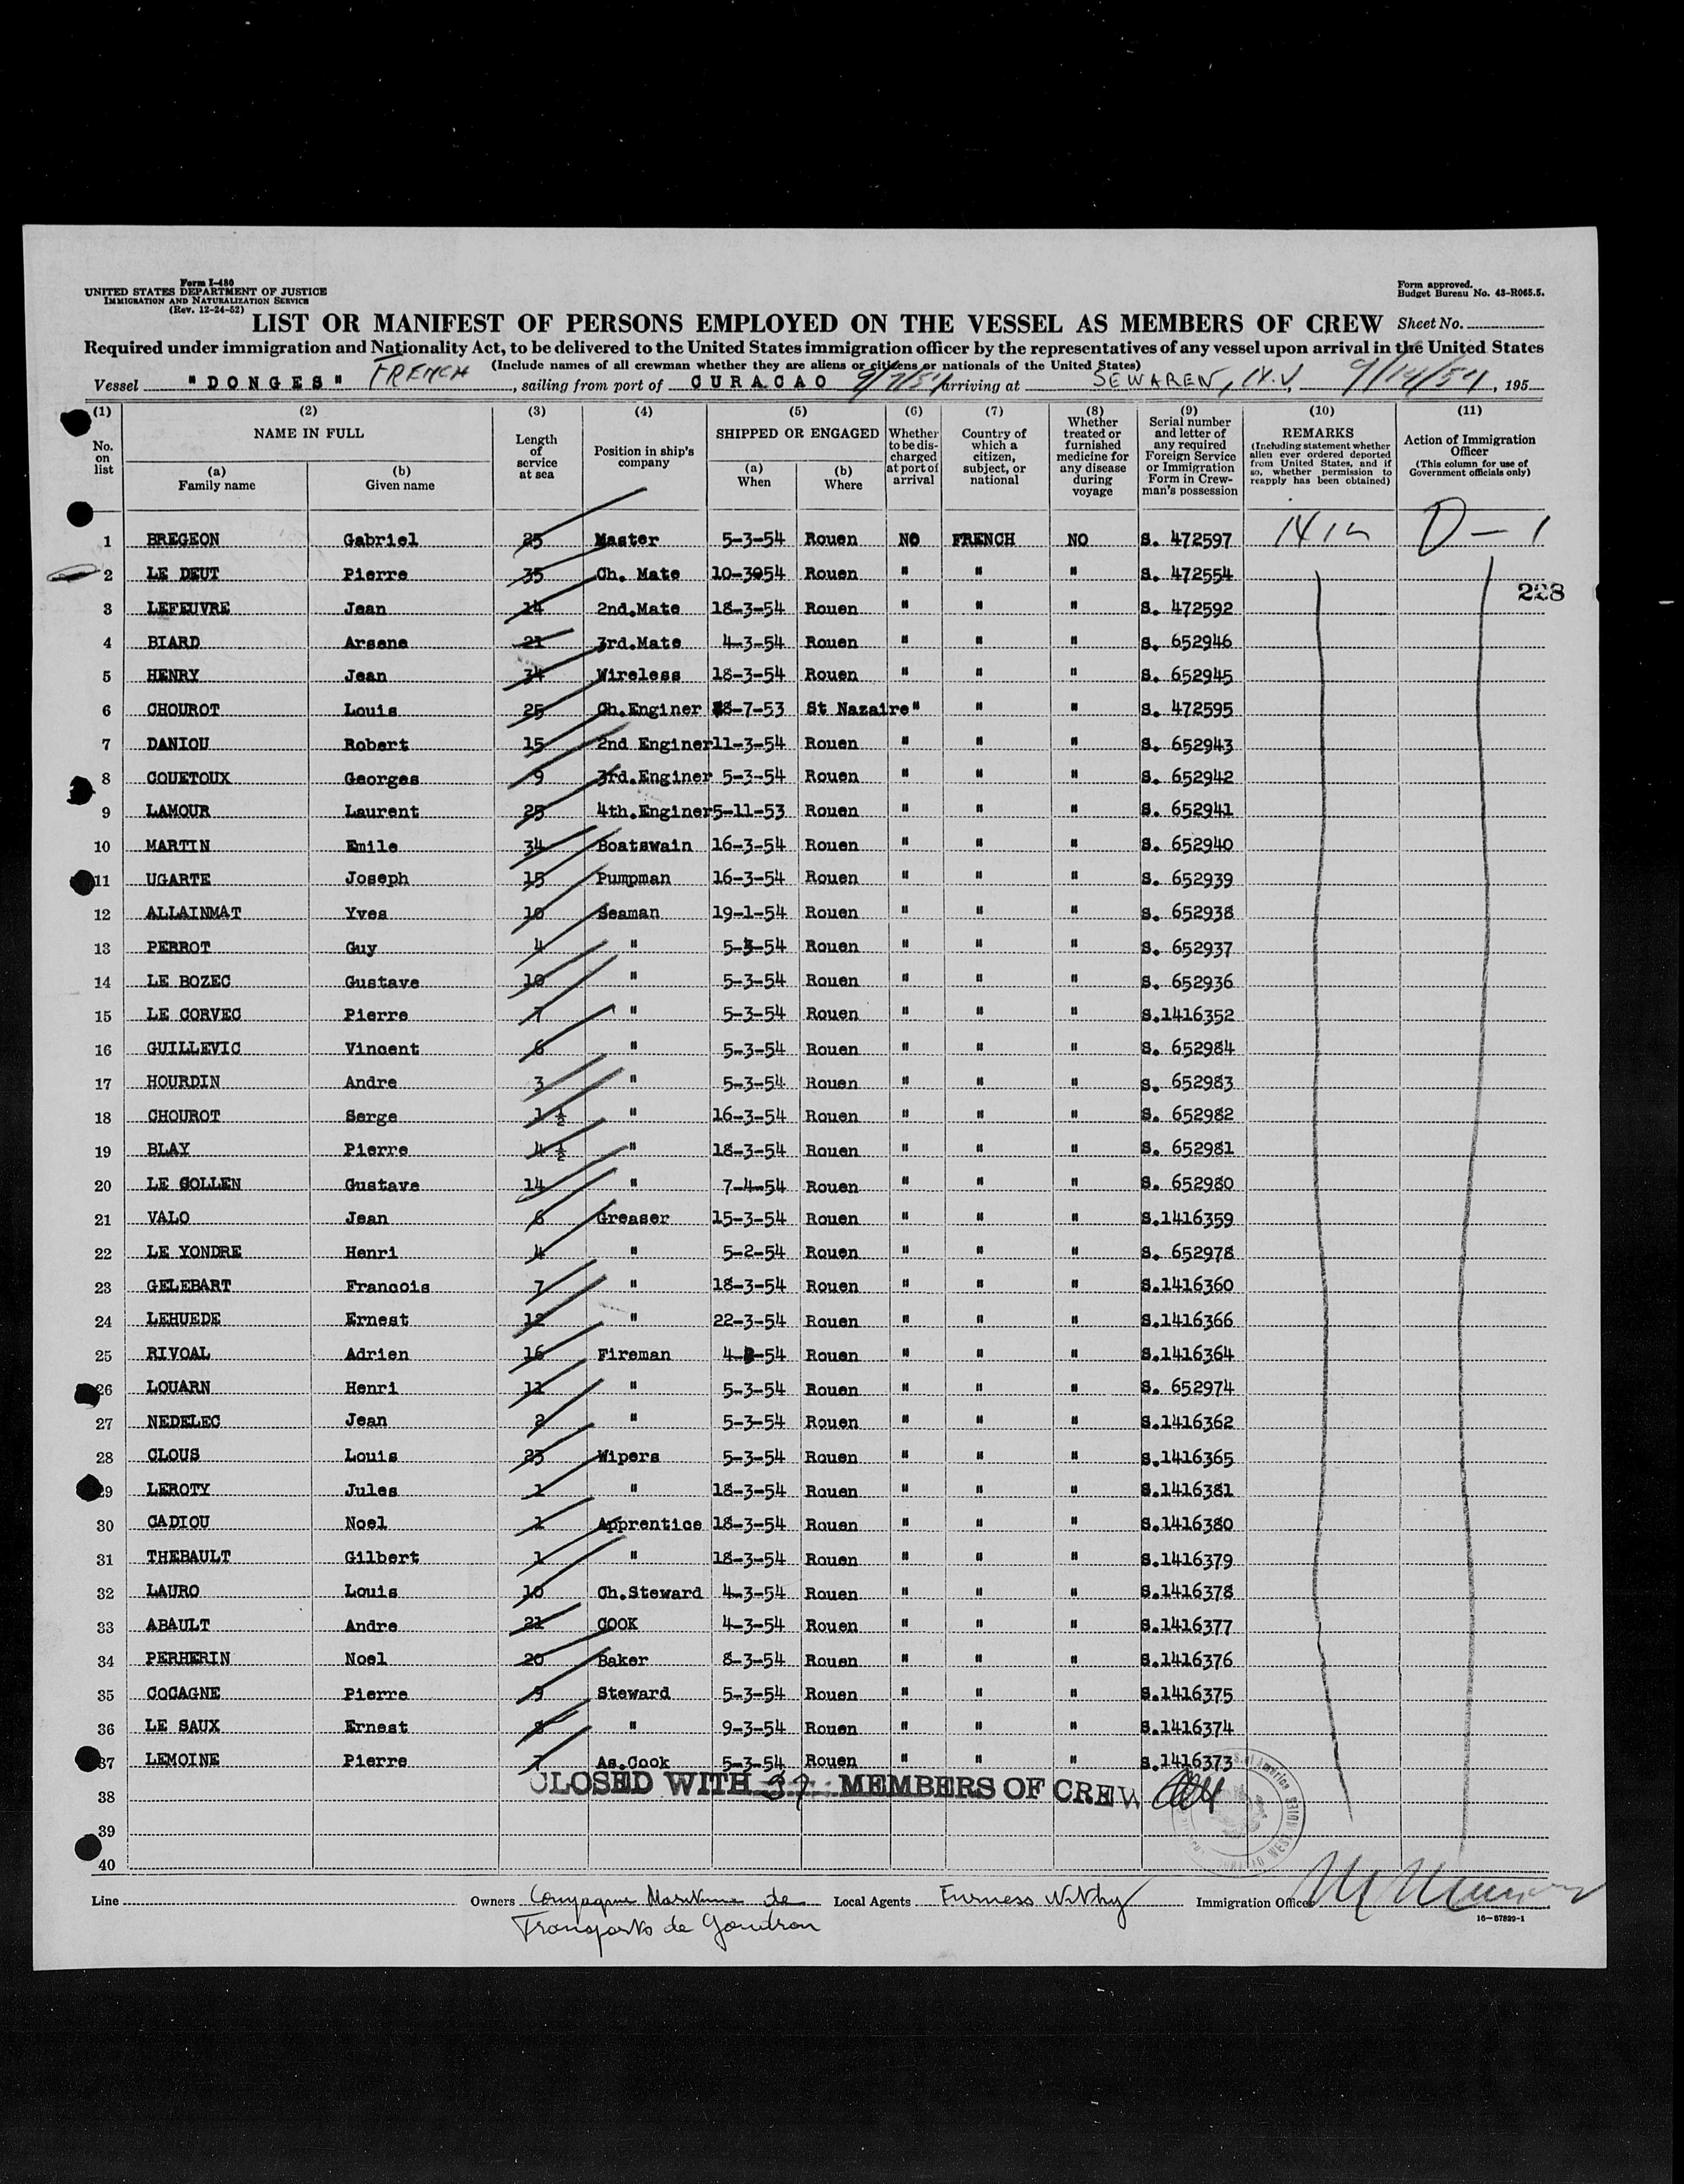 Form I-480
UNITED STATES DEPARTMENT OF JUSTICE
IMMIGRATION AND NATURALIZATION SERVICE
(Rev. 12-24-52)
Form approved.
Budget Bureau No. 43-R065.5.
LIST OR MANIFEST OF PERSONS EMPLOYED ON THE VESSEL AS MEMBERS OF CREW Sheet No.
Required under immigration and Nationality Act, to be delivered to the United States immigration officer by the representatives of any vessel upon arrival in the United States
(Include names of all crewman whether they are aliens or citizens or nationals of the United States)
Vessel "DONGES" FRENCH, sailing from port of CURACAO 9/7/54 arriving at SEWAREN, N.J., 9/14/54, 195
(1) (2) (3) (4) (5) (6) (7) (8) (9) (10) (11)
No. on list
NAME IN FULL
(a) Family name
(b) Given name
Length of service at sea
Position in ship's company
SHIPPED OR ENGAGED
(a) When
(b) Where
Whether to be discharged at port of arrival
Country of which a citizen, subject, or national
Whether treated or furnished medicine for any disease during voyage
Serial number and letter of any required Foreign Service or Immigration Form in Crewman's possession
REMARKS
(Including statement whether alien ever ordered deported from United States, and if so, whether permission to reapply has been obtained)
Action of Immigration Officer
(This column for use of Government officials only)
1 BREGEON Gabriel 25 Master 5-3-54 Rouen NO FRENCH NO S. 472597 D-1
2 LE DEUT Pierre 35 Ch. Mate 10-3054 Rouen " " " S. 472554
228
3 LEFEUVRE Jean 14 2nd.Mate 18-3-54 Rouen " " " S. 472592
4 BIARD Arsene 21 3rd.Mate 4-3-54 Rouen " " " S. 652946
5 HENRY Jean 34 Wireless 18-3-54 Rouen " " " S. 652945
6 CHOUROT Louis 25 Ch.Enginer 8-7-53 St Nazaire " " " S. 472595
7 DANIOU Robert 15 2nd Enginer 11-3-54 Rouen " " " S. 652943
8 COUETOUX Georges 9 3rd.Enginer 5-3-54 Rouen " " " S. 652942
9 LAMOUR Laurent 25 4th.Enginer 5-11-53 Rouen " " " S. 652941
10 MARTIN Emile 34 Boatswain 16-3-54 Rouen " " " S. 652940
11 UGARTE Joseph 15 Pumpman 16-3-54 Rouen " " " S. 652939
12 ALLAINMAT Yves 10 Seaman 19-1-54 Rouen " " " S. 652938
13 PERROT Guy 4 " 5-3-54 Rouen " " " S. 652937
14 LE BOZEC Gustave 10 " 5-3-54 Rouen " " " S. 652936
15 LE CORVEC Pierre 7 " 5-3-54 Rouen " " " S.1416352
16 GUILLEVIC Vincent 6 " 5-3-54 Rouen " " " S. 652984
17 HOURDIN Andre 3 " 5-3-54 Rouen " " " S. 652983
18 CHOUROT Serge 1 ½ " 16-3-54 Rouen " " " S. 652982
19 BLAY Pierre 4 ½ " 18-3-54 Rouen " " " S. 652981
20 LE GOLLEN Gustave 14 " 7-4-54 Rouen " " " S. 652980
21 VALO Jean 6 Greaser 15-3-54 Rouen " " " S.1416359
22 LE YONDRE Henri 4 " 5-2-54 Rouen " " " S. 652978
23 GELEBART Francois 7 " 18-3-54 Rouen " " " S.1416360
24 LEHUEDE Ernest 12 " 22-3-54 Rouen " " " S.1416366
25 RIVOAL Adrien 16 Fireman 4- -54 Rouen " " " S.1416364
26 LOUARN Henri 11 " 5-3-54 Rouen " " " S. 652974
27 NEDELEC Jean 2 " 5-3-54 Rouen " " " S.1416362
28 CLOUS Louis 23 Wipers 5-3-54 Rouen " " " S.1416365
29 LEROTY Jules 1 " 18-3-54 Rouen " " " S.1416381
30 CADIOU Noel 1 Apprentice 18-3-54 Rouen " " " S.1416380
31 THEBAULT Gilbert 1 " 18-3-54 Rouen " " " S.1416379
32 LAURO Louis 10 Ch.Steward 4-3-54 Rouen " " " S.1416378
33 ABAULT Andre 21 COOK 4-3-54 Rouen " " " S.1416377
34 PERHERIN Noel 20 Baker 8-3-54 Rouen " " " S.1416376
35 COCAGNE Pierre 9 Steward 5-3-54 Rouen " " " S.1416375
36 LE SAUX Ernest 8 " 9-3-54 Rouen " " " S.1416374
37 LEMOINE Pierre 7 As.Cook 5-3-54 Rouen " " " S.1416373
CLOSED WITH 37 MEMBERS OF CREW
38
39
40
Line Owners Compagnie Maritime de Local Agents Furness Withy Immigration Officer
Transports de Goudron
16-67829-1